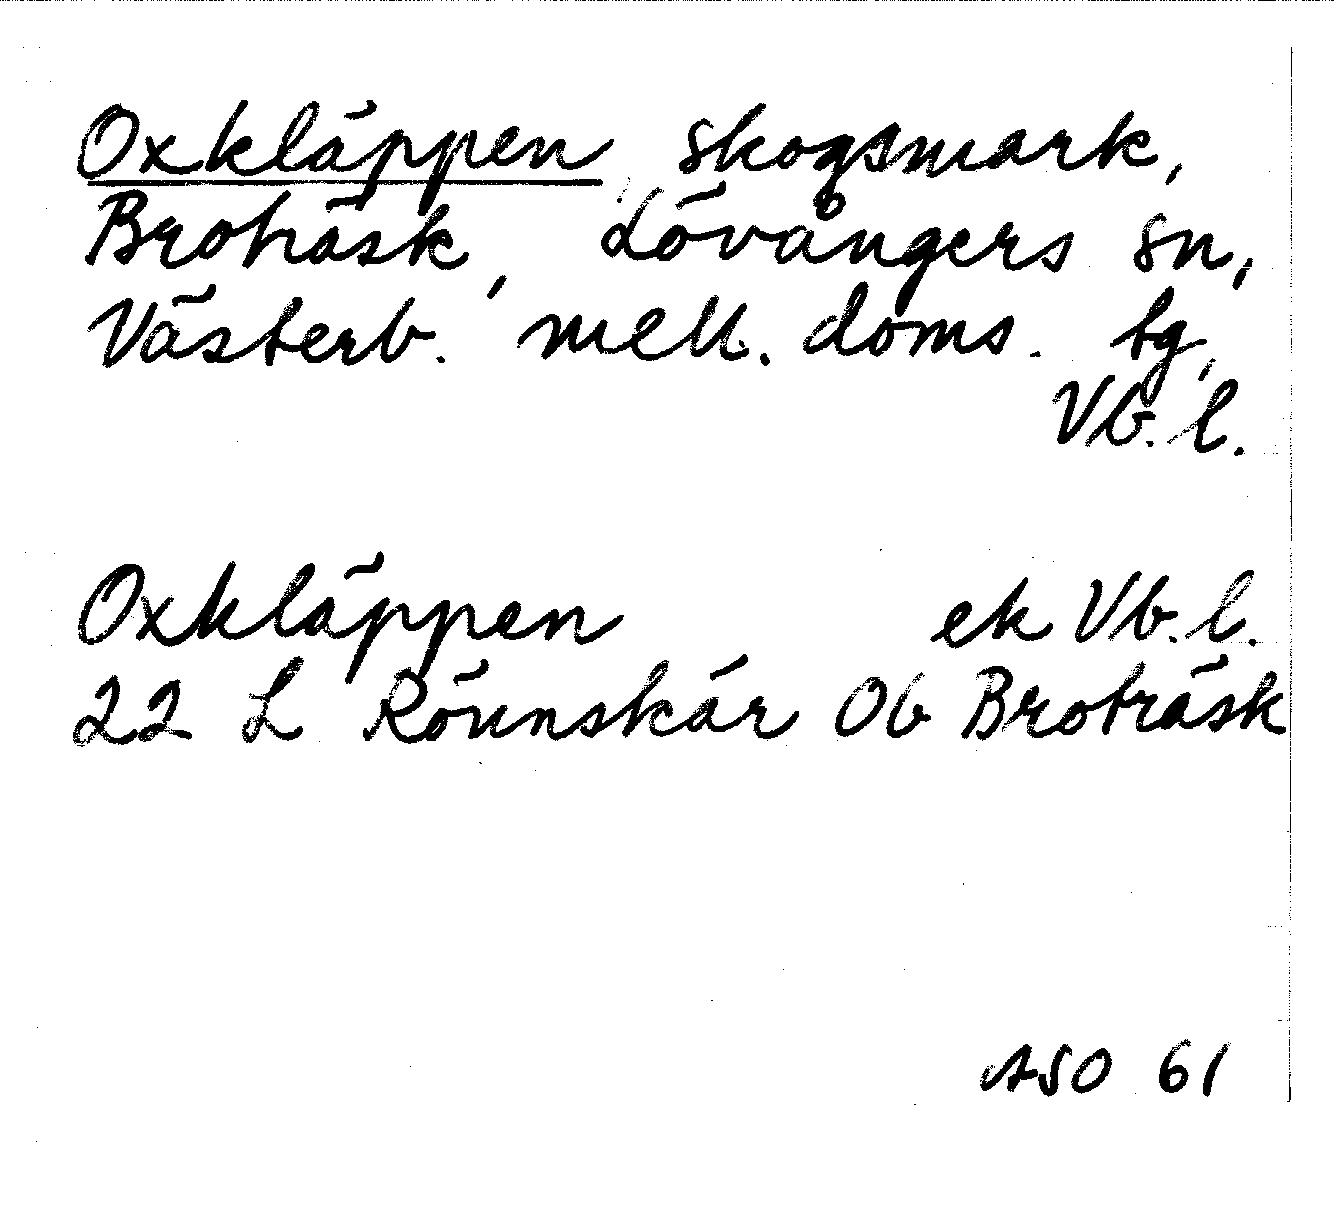 Oxkläppen skogsmark,
Broträsk, Lövångers sn,
Västerb. mell. doms. tg,
Vb. l.
Oxkläppen ek Vb. l.
22 L Rönnskär Ob Broträsk
ASO 61